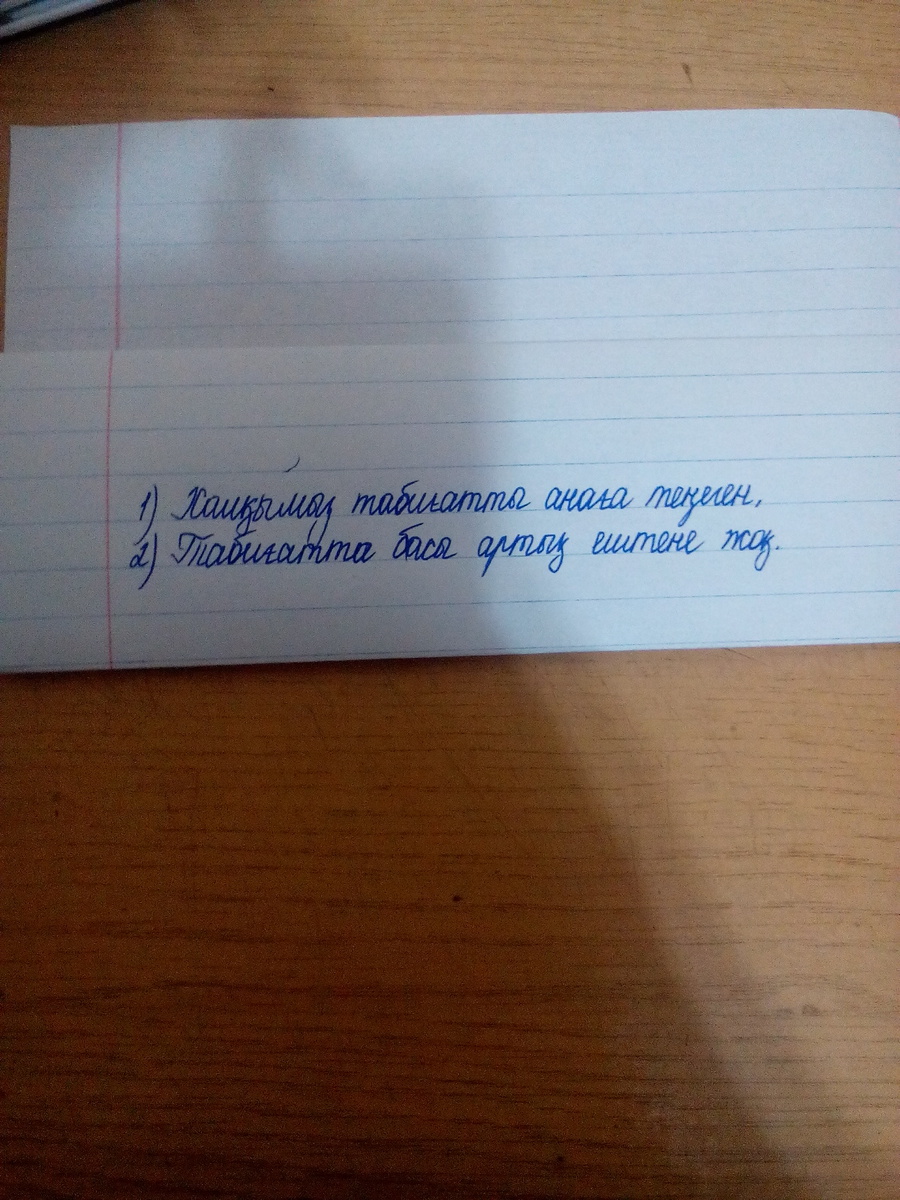 1) Халқымыз табиғатты анаға теңеген.
2) Табиғатта басы артық ештеңе жоқ.